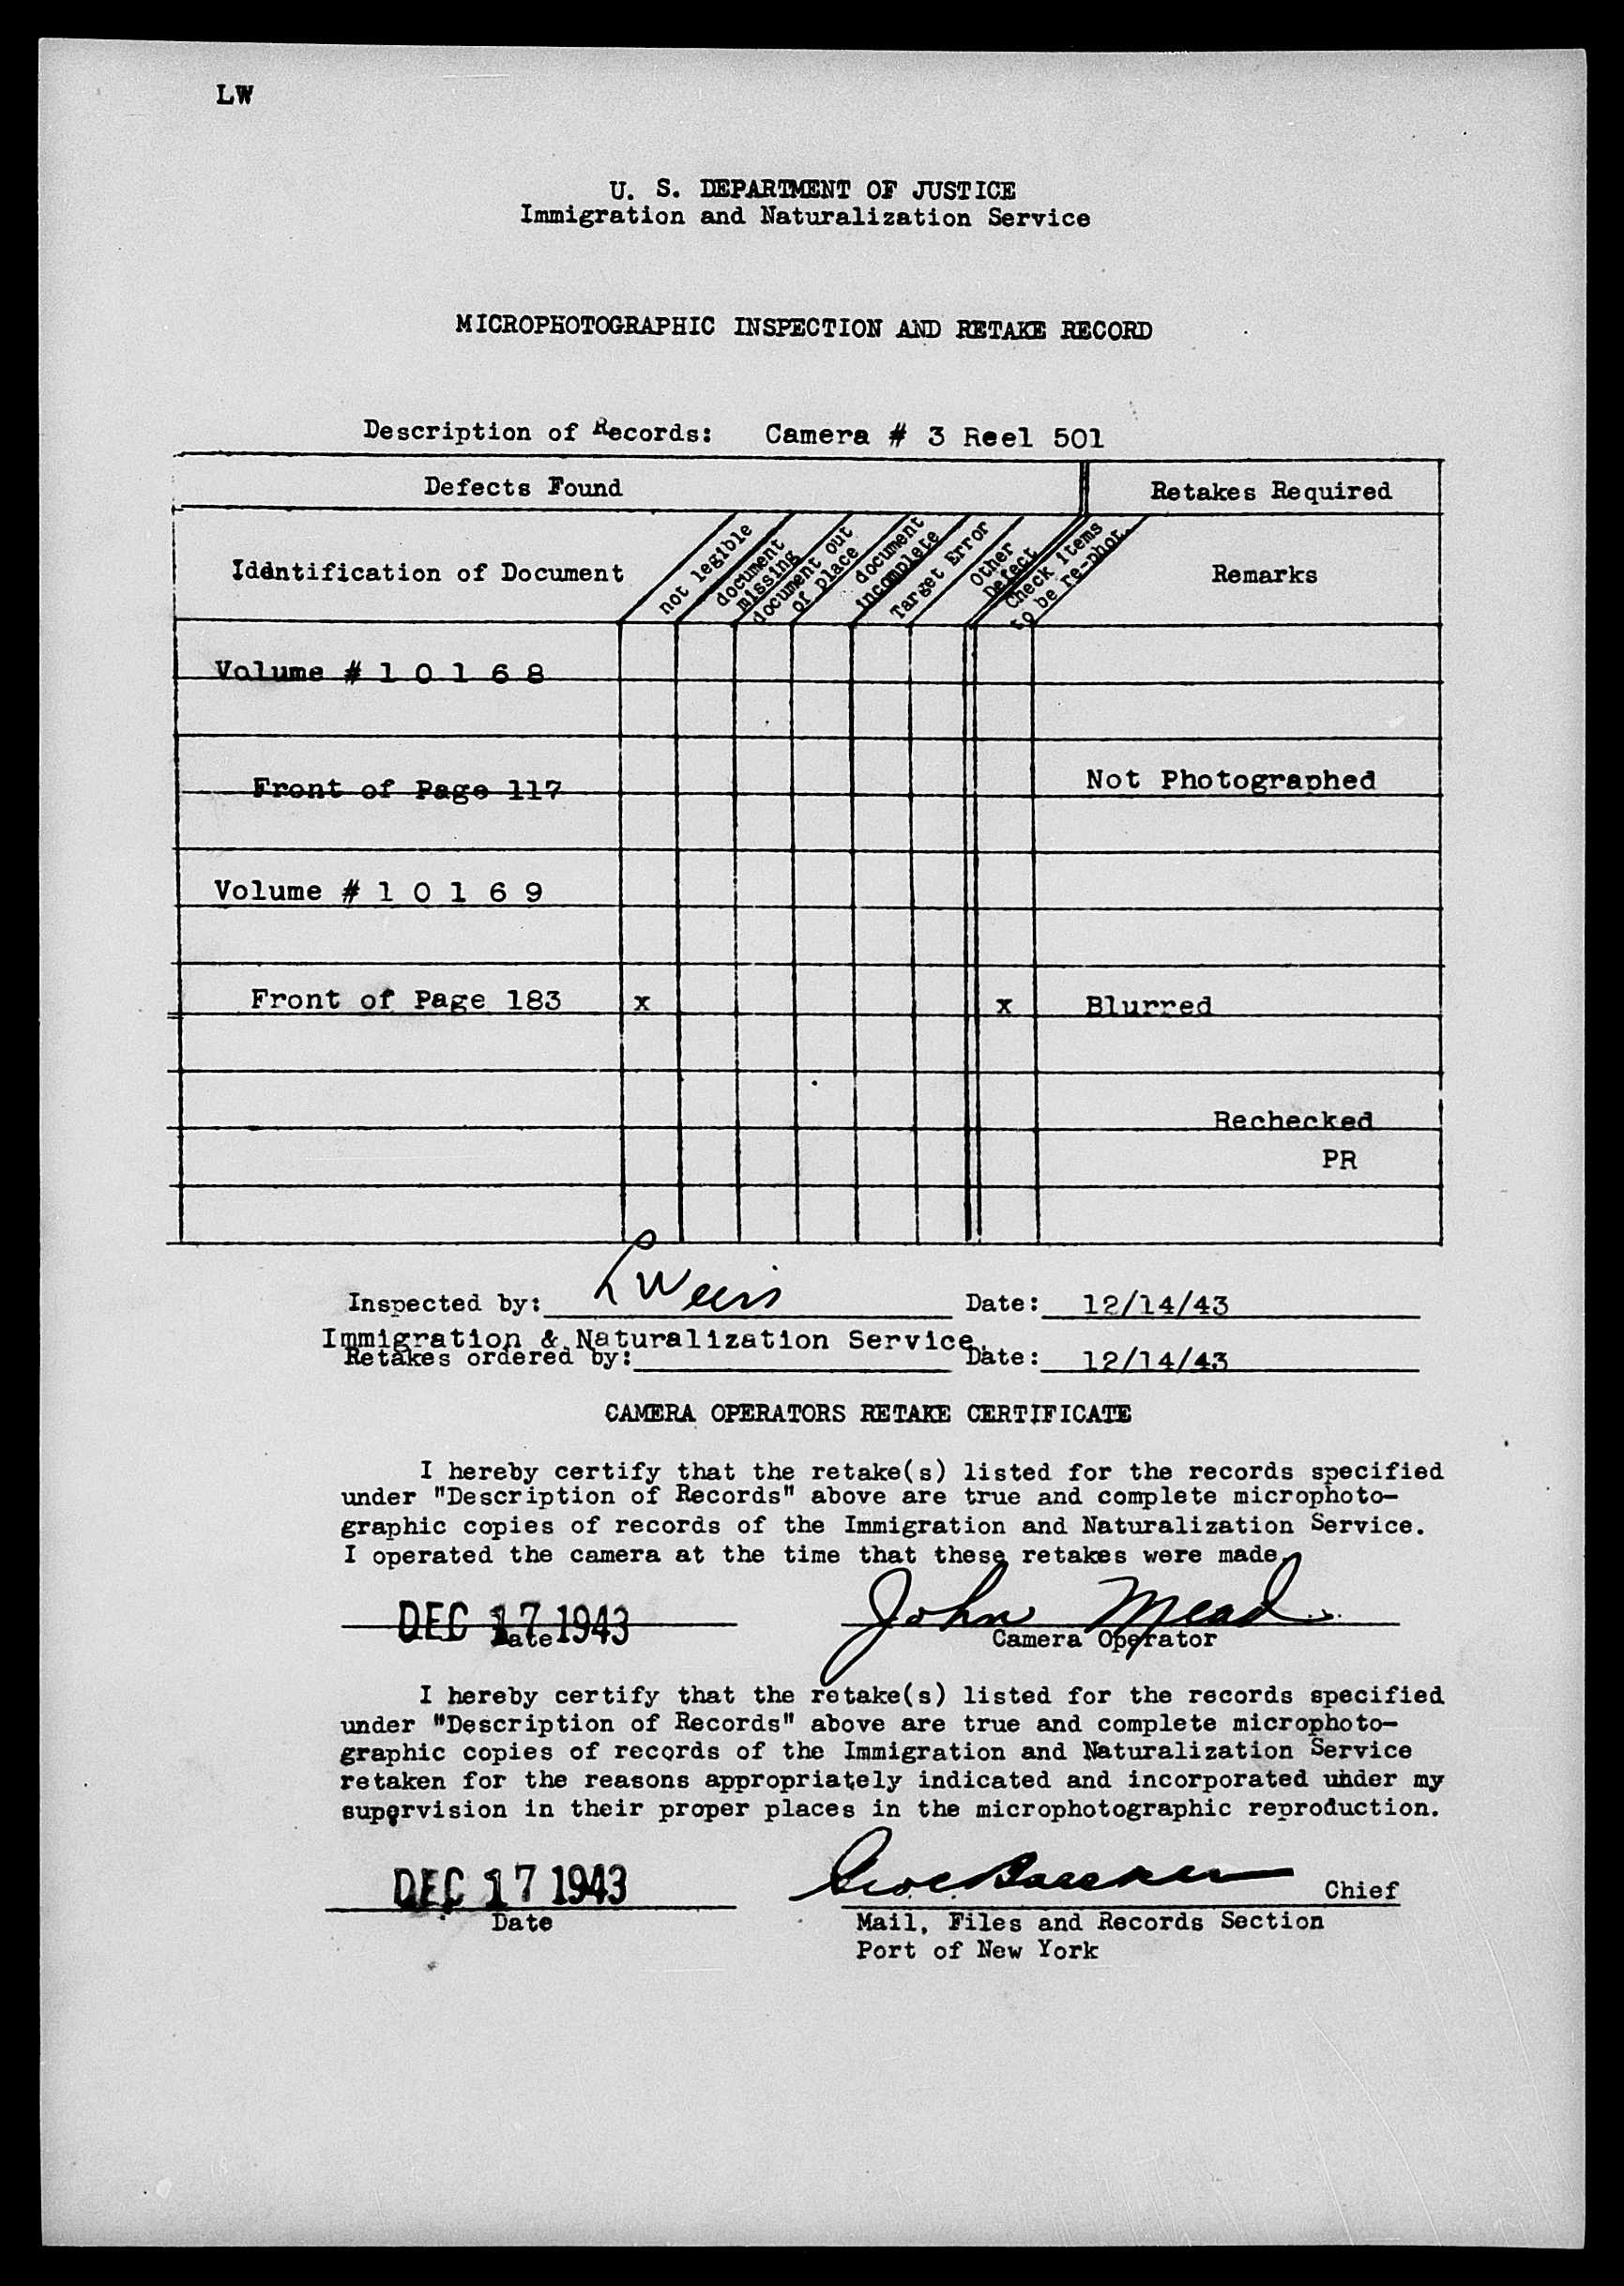 LW
U. S. DEPARTMENT OF JUSTICE
Immigration and Naturalization Service
MICROPHOTOGRAPHIC INSPECTION AND RETAKE RECORD
Description of Records: Camera # 3 Reel 501
Defects Found Retakes Required
Identification of Document
not legible
document
missing
document out
of place
document
incomplete
Target Error
Other
Defect
Check items
to be re-phot.
Remarks
Volume # 1 0 1 6 8
Front of Page 117 Not Photographed
Volume # 1 0 1 6 9
Front of Page 183 x x Blurred
Rechecked
PR
Inspected by: L Weis Date: 12/14/43
Immigration & Naturalization Service.
Retakes ordered by: Date: 12/14/43
CAMERA OPERATORS RETAKE CERTIFICATE
I hereby certify that the retake(s) listed for the records specified
under "Description of Records" above are true and complete microphoto-
graphic copies of records of the Immigration and Naturalization Service.
I operated the camera at the time that these retakes were made.
DEC 17 1943 John Mead
Date Camera Operator
I hereby certify that the retake(s) listed for the records specified
under "Description of Records" above are true and complete microphoto-
graphic copies of records of the Immigration and Naturalization Service
retaken for the reasons appropriately indicated and incorporated under my
supervision in their proper places in the microphotographic reproduction.
DEC 17 1943 Chief
Date Mail, Files and Records Section
Port of New York